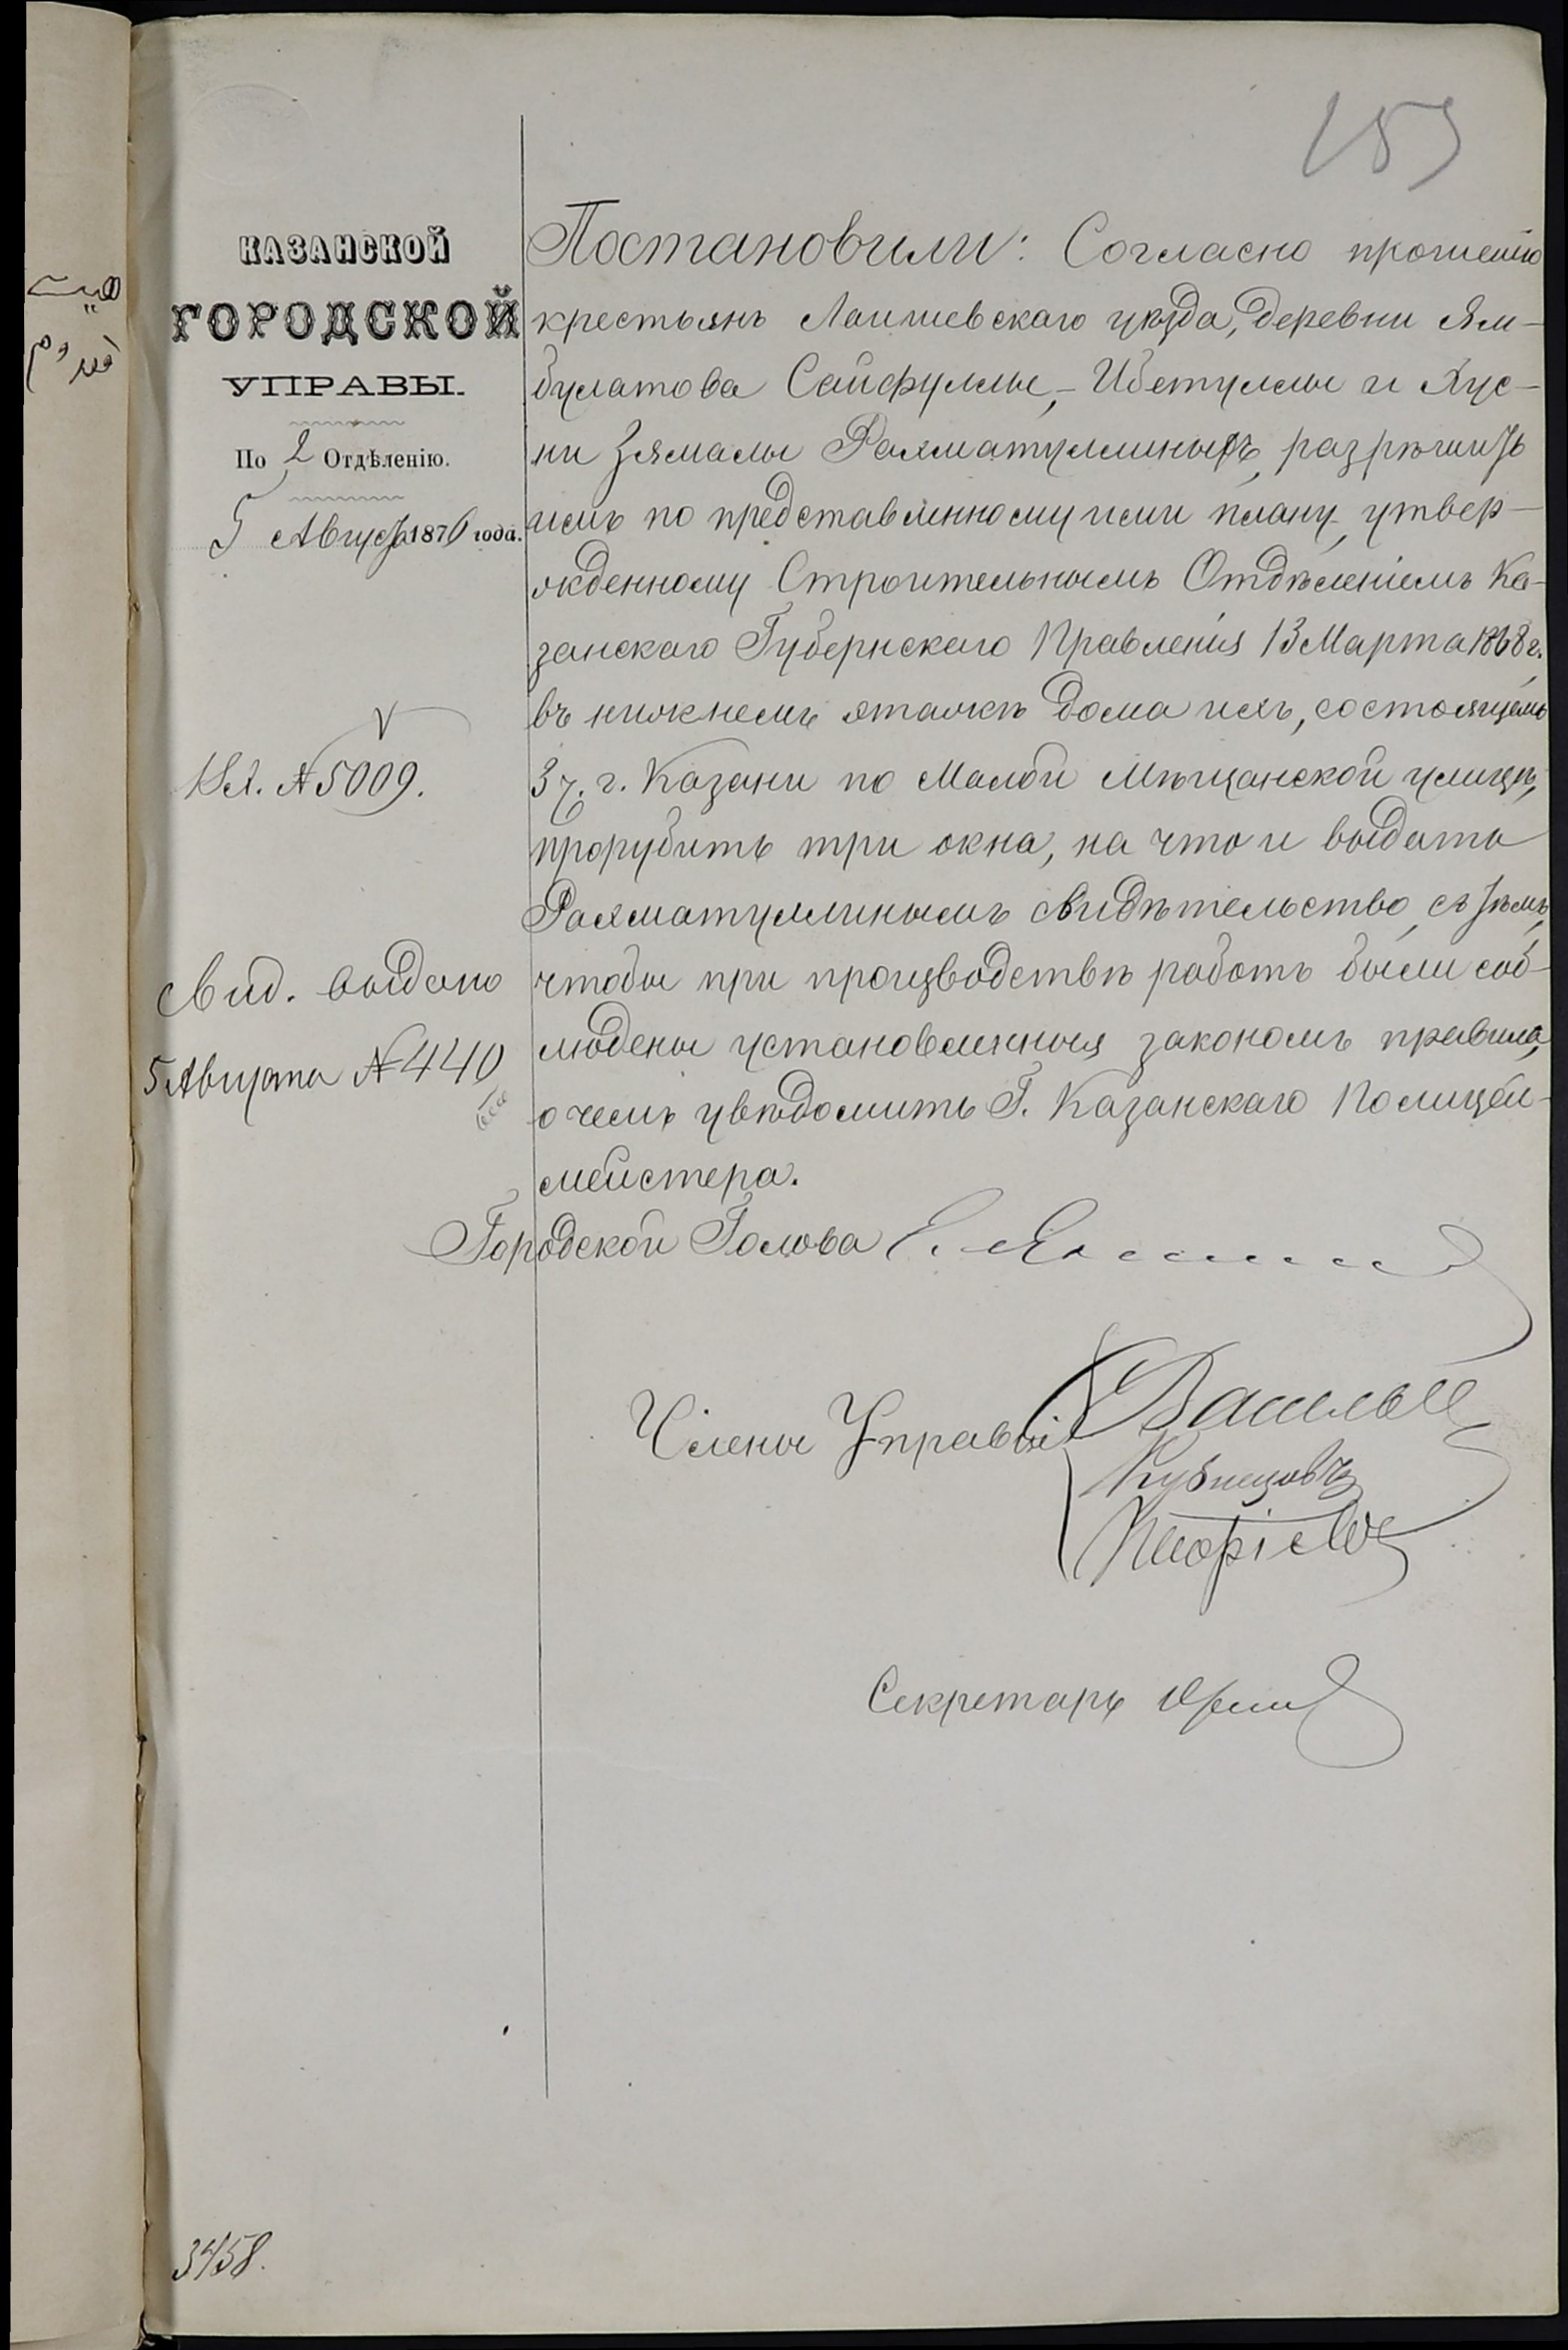 153
КАЗАНСКОЙ
ГОРОДСКОЙ
УПРАВЫ.
По 2 Отдѣленію.
5 Августа 1876 года.
V
Вх. № 5009.
Свид. выдано
5 Августа № 440
Постановили: Согласно прошенію
крестьянъ Лаишевскаго уѣзда, деревни Ям-
булатова Сайфуллы, - Ибетуллы и Хус-
ни Зямалы Рахматуллиныхъ, разрѣшить
имъ по представленному ими плану, утвер-
жденному Строительнымъ Отдѣленіемъ Ка-
занскаго Губернскаго Правленія 13 Марта 1868 г.
въ нижнемъ этажѣ дома ихъ, состоящемъ
3 ч. г. Казани по Малой Мѣщанской улицѣ,
прорубить три окна, на что и выдать
Рахматуллинымъ свидѣтельство, съ тѣмъ,
чтобы при производствѣ работъ были соб-
людены установленныя закономъ правила,
о чемъ увѣдомить Г. Казанскаго Полицей-
мейстера.
Городской Голова
Члены Управы:
Васильев
Кузнецовъ
Секретарь
3458.